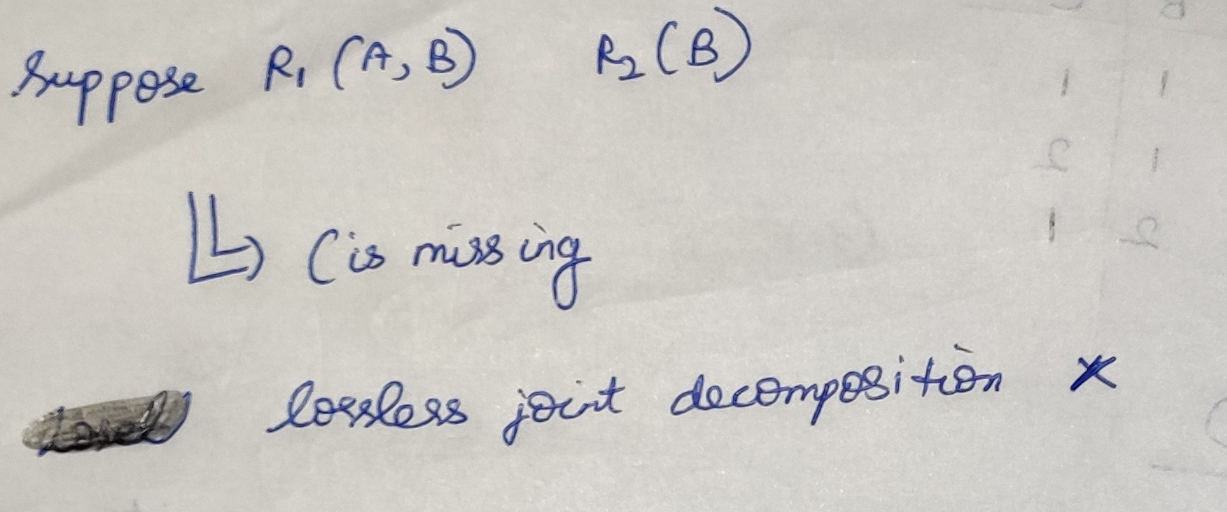 Suppose R₁ (A, B) R₂ (B)
C is missing
lossless joint decomposition ×